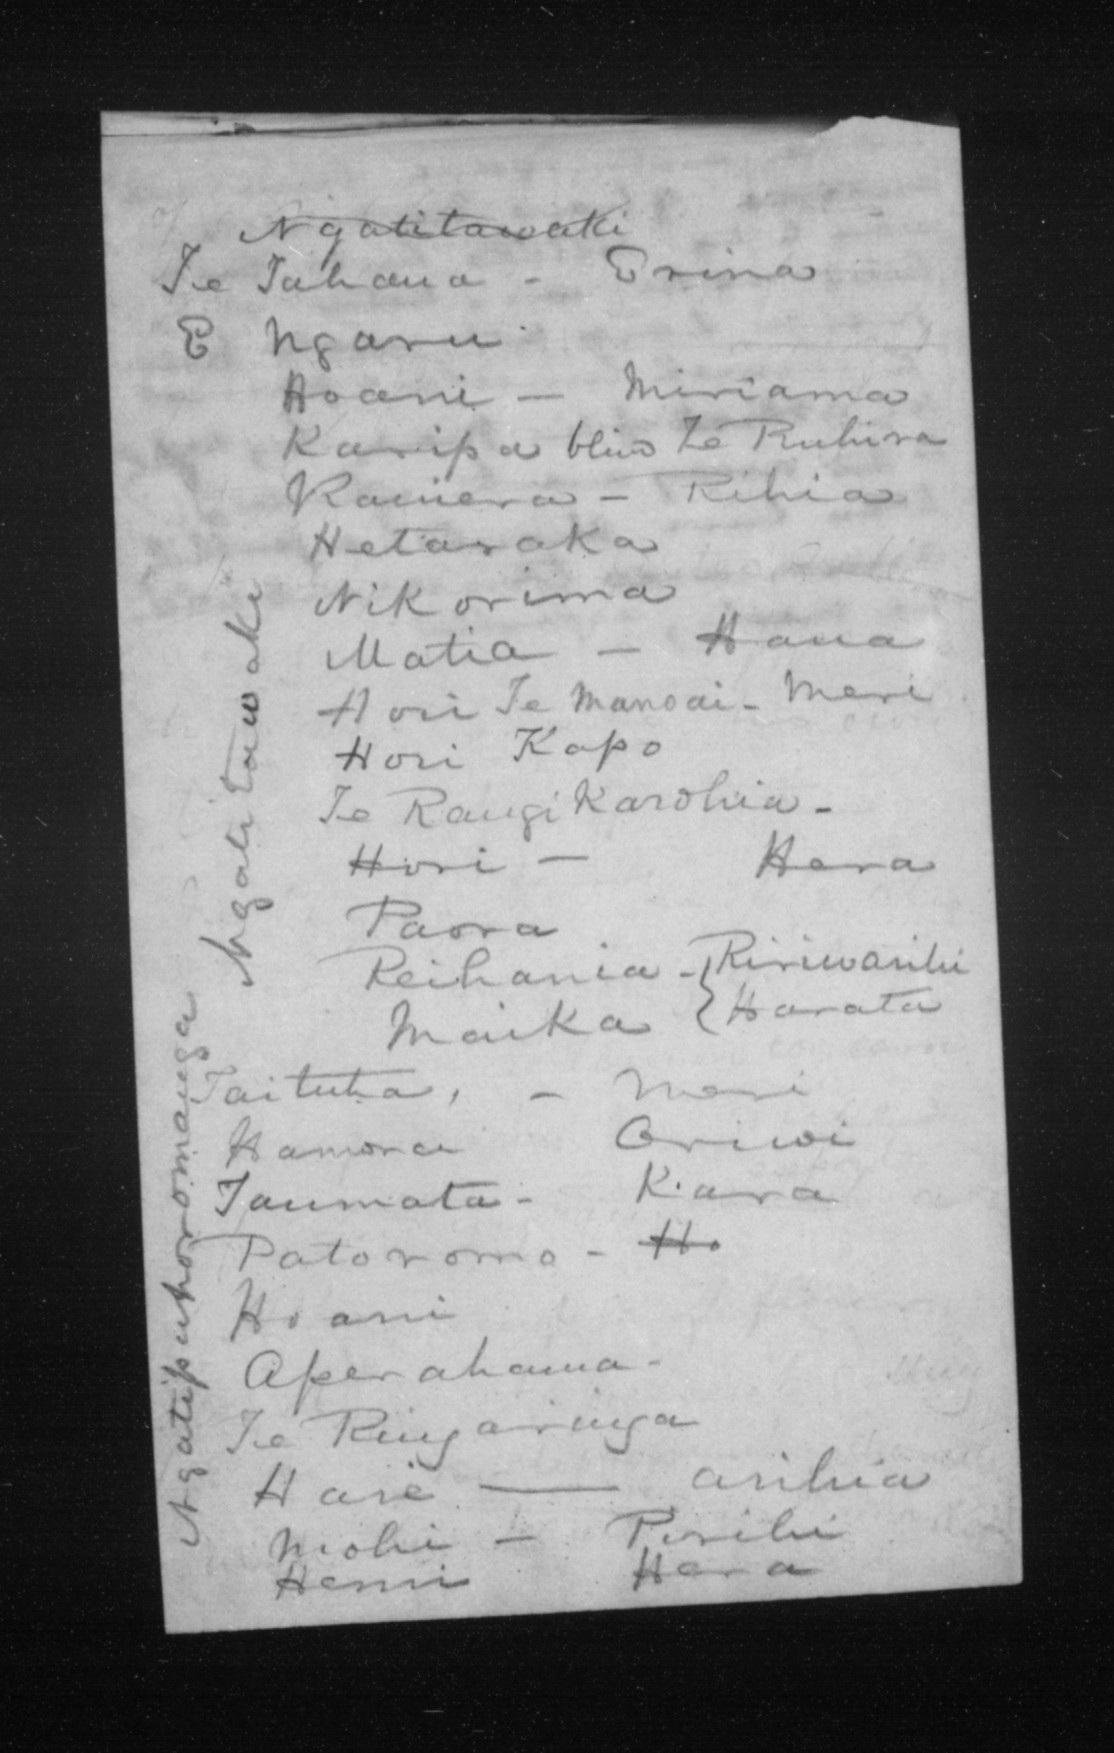 Ngatitawaki
Te Tahana - Erina
E Ngaru
Hoani - Miriama
Karipa Te Ruhira
Kamera - Rihia
Hetaraka
Nikorima
Matia - Hana
Hori Te Manoai - Meri
Hori Kapo
Te Rangi Karohia -
Hori - Hera
Paora
Reihania - Ririwarihi
Maika { Harata
Ngatitawaki
Taituha, - Meri
Hamora Oriwi
Taumata - Kara
Patoromo - Ho
Hoani
Aperahama -
Te Ringaringa
Hare — Arihia
Mohi - Pirihi
Hemi Hera
Ngatipuhoromanga